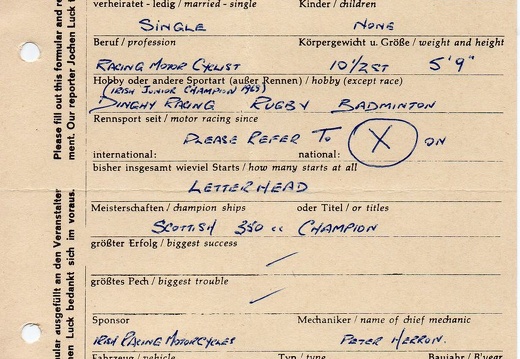 verheiratet - ledig / married - single Kinder / children
SINGLE NONE
Beruf / profession Körpergewicht u. Größe / weight and height
RACING MOTOR CYCLIST 10 1/2 ST 5'9"
Hobby oder andere Sportart (außer Rennen) / hobby (except race)
(IRISH JUNIOR CHAMPION 1965)
DINGHY RACING RUGBY BADMINTON
Rennsport seit / motor racing since
PLEASE REFER TO X ON
international: national:
bisher insgesamt wieviel Starts / how many starts at all
LETTERHEAD
Meisterschaften / champion ships oder Titel / or titles
SCOTTISH 350 cc CHAMPION
größter Erfolg / biggest success
größtes Pech / biggest trouble
Sponsor Mechaniker / name of chief mechanic
IRISH RACING MOTORCYCLES PETER HERRON.
Fahrzeug / vehicle Typ / type Baujahr / B'year
Please fill out this formular and
ment. Our reporter Jochen Luck
ular ausgefüllt an den Veranstalter
hen Luck bedankt sich im voraus.